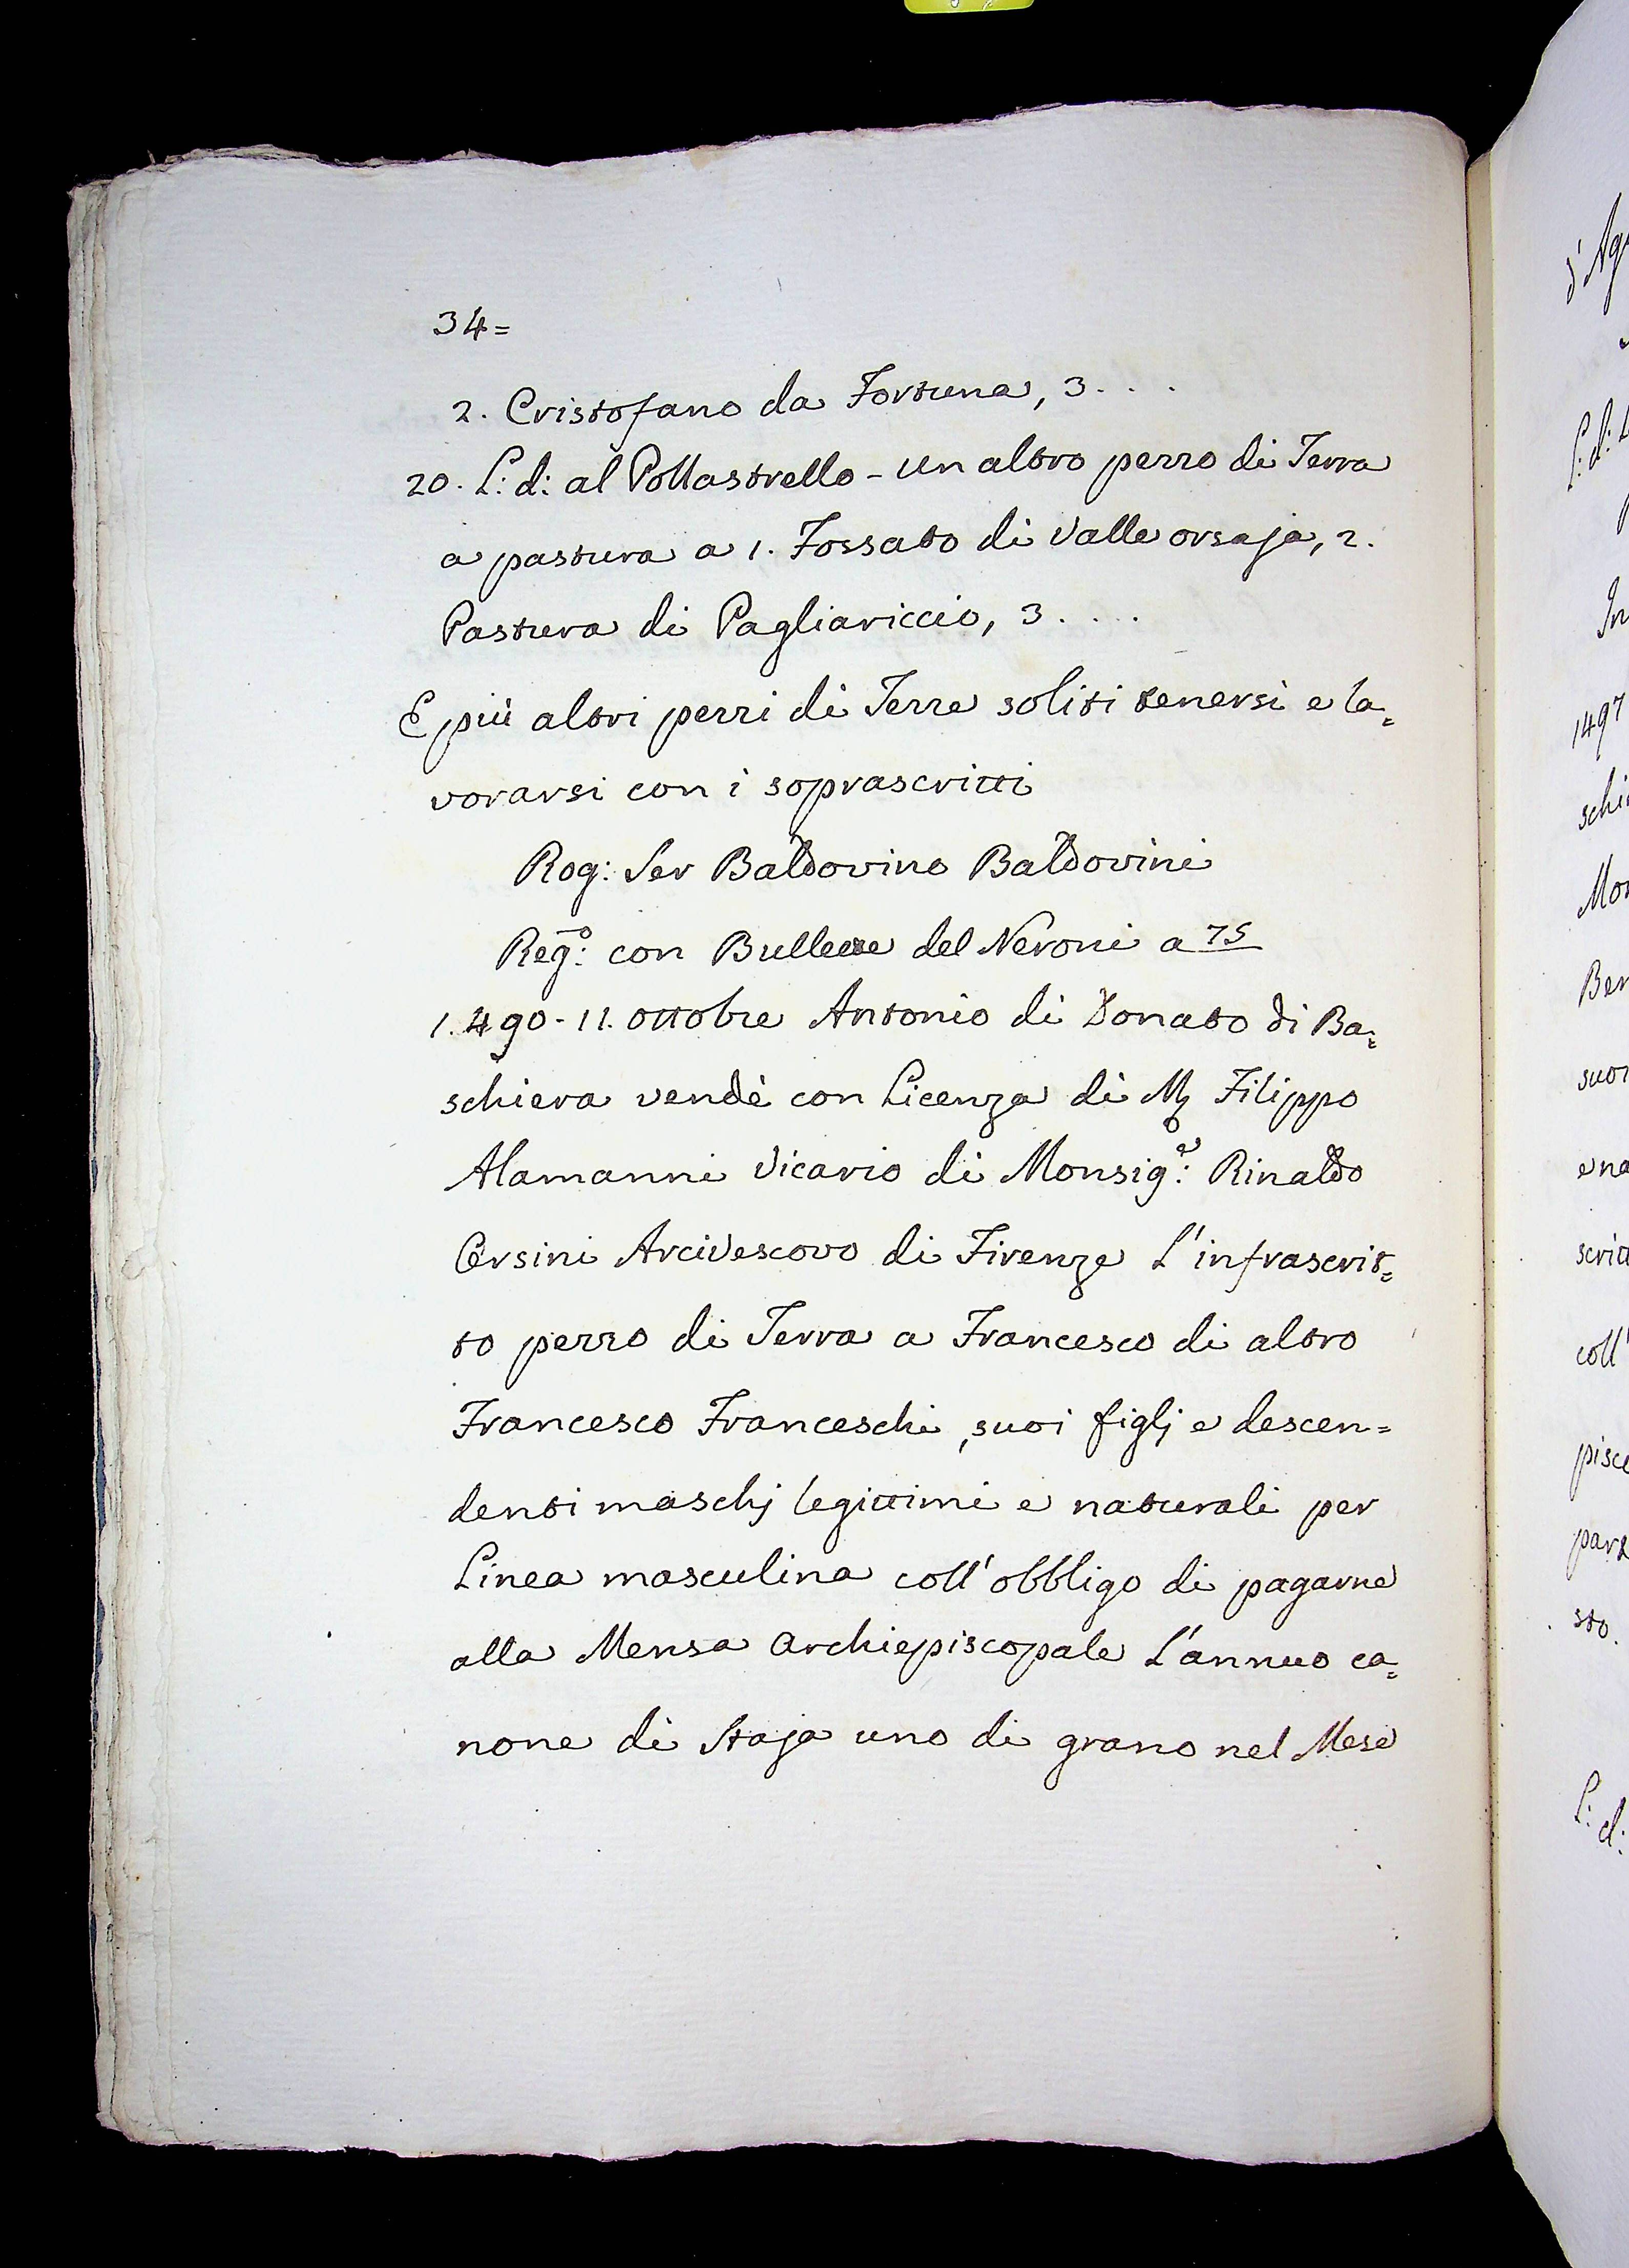 34=
2. Cristofano da Fortuna, 3. . . .
20. L: d: al Pollastrello - un altro pezzo di Terra
a pastura a 1. Fossato di Valle orsaja, 2.
Pastura di Pagliariccio, 3. . . .
E più altri pezzi di Terre soliti tenersi e la=
vorarsi con i soprascritti
Rog: Ser Baldovino Baldovini
Reg:º con Bullette del Neroni a 75
1490 - 11. ottobre Antonio di Donato di Ba=
schiera vendè con Licenza di M. Filippo
Alamanni Vicario di Monsig:e Rinaldo
Orsini Arcivescovo di Firenze L'infrascrit=
to pezzo di Terra a Francesco di altro
Francesco Franceschi, suoi figlj e descen=
denti maschj legittimi e naturali per
Linea masculina coll'obbligo di pagarne
alla Mensa Archiepiscopale L'annuo ca=
none di Staja uno di grano nel Mese
In
1497
coll'